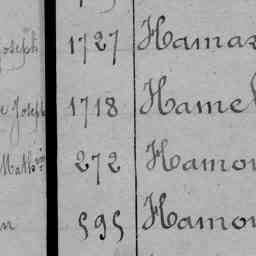 Joseph 1727 Hamar
e Joseph 1718 Hamel
Math 272 Hamon
n 595 Hamon